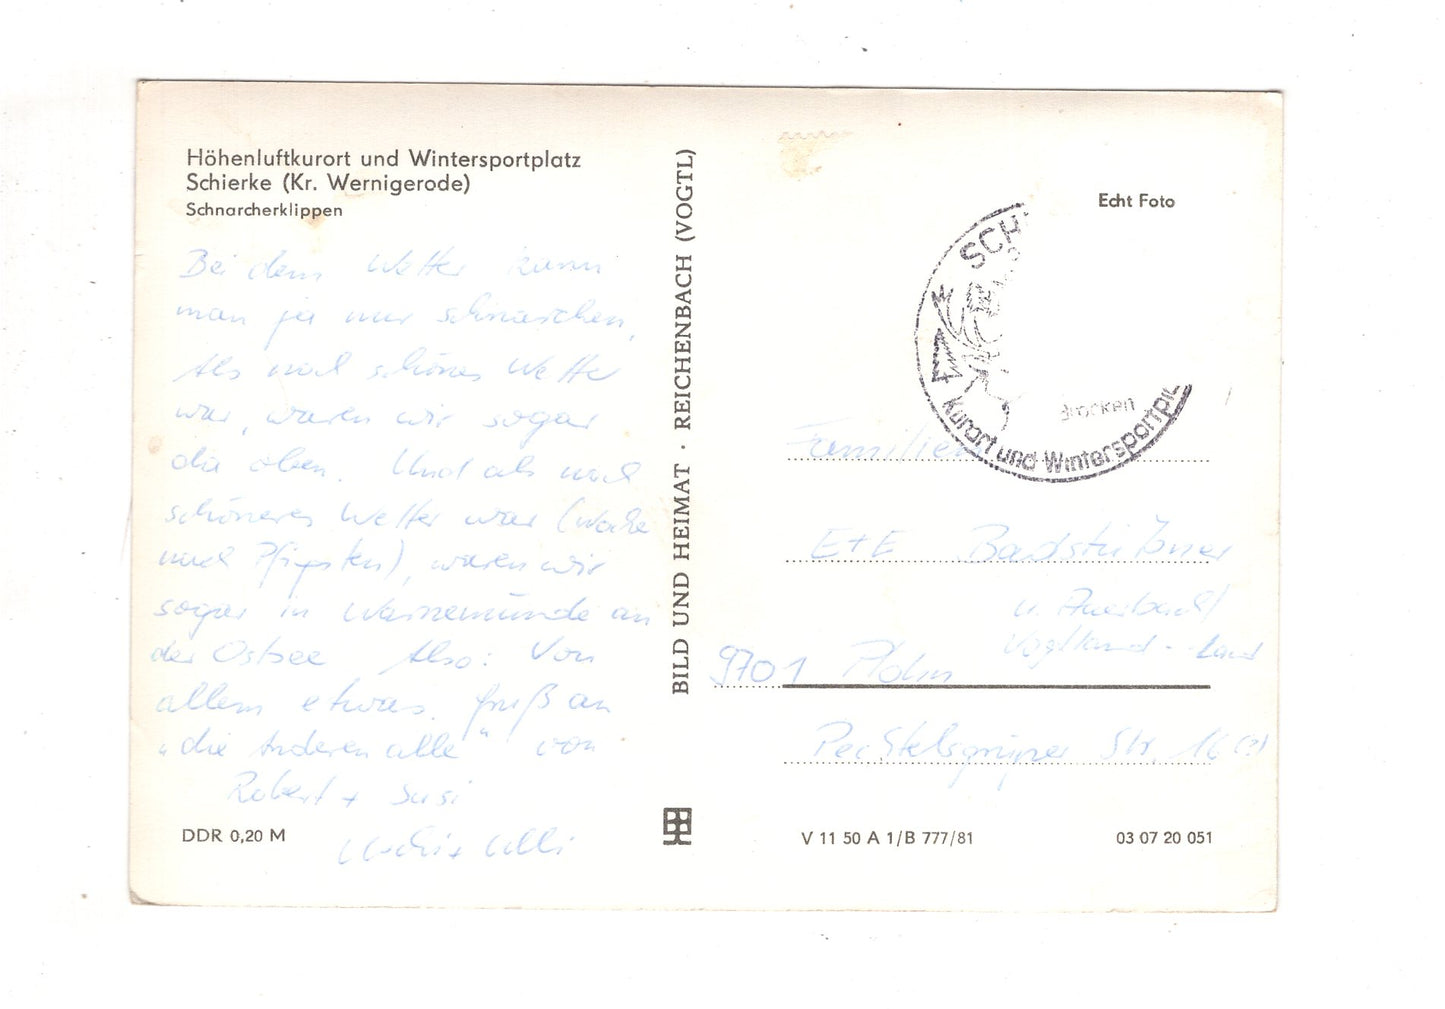 Höhenluftkurort und Wintersportplatz
Schierke (Kr. Wernigerode)
Schnarcherklippen
Bei dem Wetter kann
man ja nur schnarchen,
Als noch schönes Wetter
war, waren wir sogar
da oben. Und als noch
schöneres Wetter war (Woche
nach Pfingsten), waren wir
sogar in Warnemünde an
der Ostsee Also: Von
allem etwas. Gruß an
„die Anderen alle" von
Robert + Susi
+ Ulli
DDR 0,20 M
BILD UND HEIMAT · REICHENBACH (VOGTL)
Echt Foto
SCH
Brocken
Kurort und Wintersportpl
Familien
E+E Badstübner
Auerbach/
Vogtland - Land
9701 Plohn
Str. 16 (?)
V 11 50 A 1/B 777/81
03 07 20 051